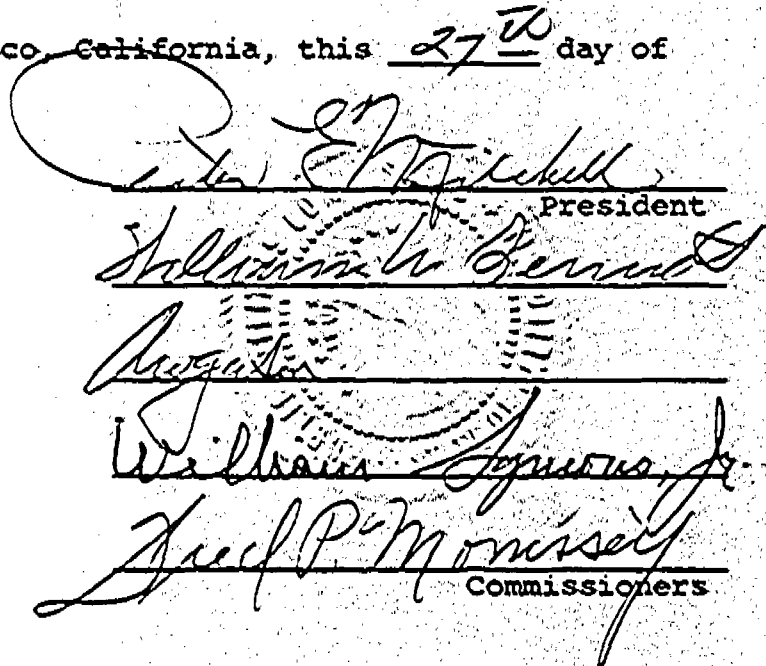 co, California, this 27th day of
E Mitchell
President
William M. Bennett
William Symons, Jr.
Fred P. Morrissey
Commissioners